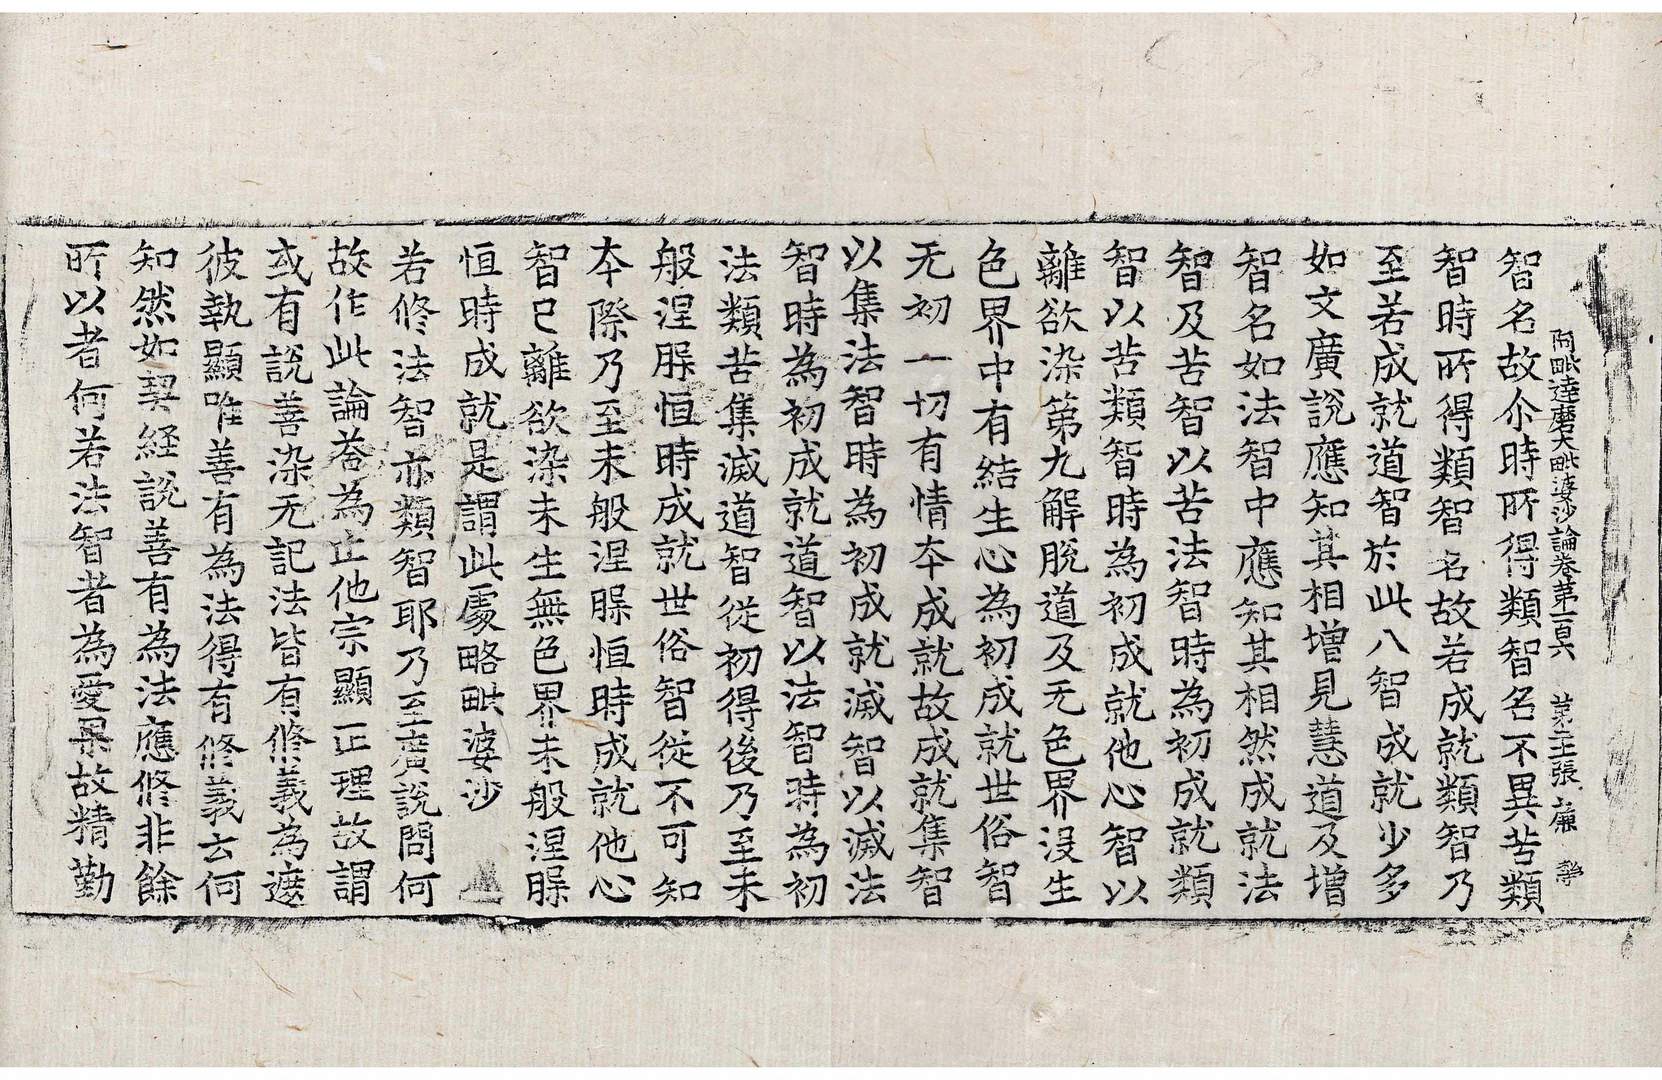 阿毗達磨大毗婆沙論卷第一百六 第二十張 廉
智名故尒時所得類智名不異苦類
智時所得類智名故若成就類智乃
至若成就道智於此八智成就少多
如文廣說應知其相增見慧道及增
智名如法智中應知其相然成就法
智及苦智以苦法智時為初成就類
智以苦類智時為初成就他心智以
離欲染第九解脫道及无色界沒生
色界中有結生心為初成就世俗智
无初一切有情本成就故成就集智
以集法智時為初成就滅智以滅法
智時為初成就道智以法智時為初
法類苦集滅道智從初得後乃至未
般涅槃恒時成就世俗智從不可知
本際乃至未般涅槃恒時成就他心
智已離欲染未生無色界未般涅槃
恒時成就是謂此處略毗婆沙
若修法智亦類智耶乃至廣說問何
故作此論荅為止他宗顯正理故謂
或有說善染无記法皆有修義為遮
彼執顯唯善有為法得有修義云何
知然如契經說善有為法應修非餘
所以者何若法智者為愛果故精勤